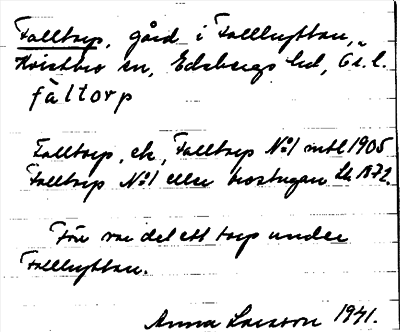 Falltorp, gård i Fallhyttan,
Kvistbro sn, Edsbergs hd, Ör. l.
fàltorp
Falltorp, ek, Falltorp No1 mtl 1905
Falltorp No1 eller krostugan Lk 1872.
Förr var det ett torp under
Fallhyttan.
Anna Larsson 1941.